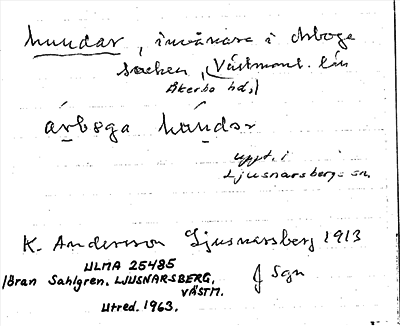 hundar, invånare i Arboga
socken, Västmanl. län
Åkerbo hd,
árboga hándar
uppt. i
Ljusnarsbergs sn
K. Andersson Ljusnarsberg 1913
ULMA 25485
Jöran Sahlgren. LJUSNARSBERG,
VÄSTM.
Utred. 1963.
J Sgn